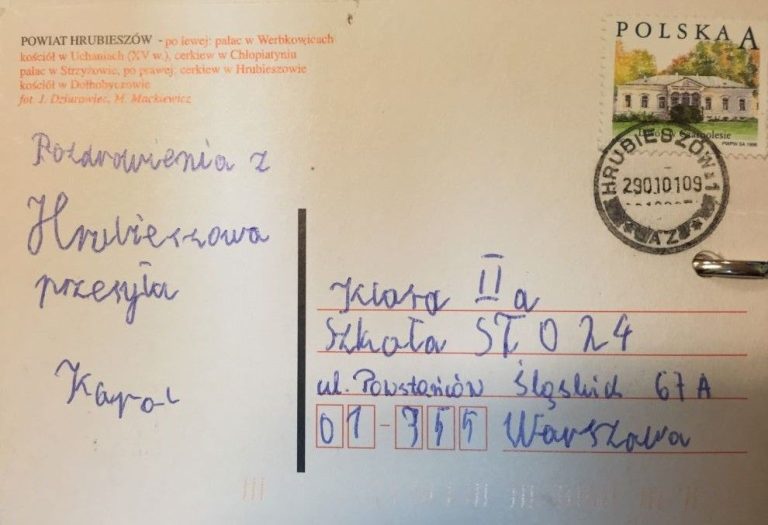 POWIAT HRUBIESZÓW - po lewej: pałac w Werbkowicach
kościół w Uchaniach (XV w.), cerkiew w Chłopiatyniu
pałac w Strzyżowie, po prawej: cerkiew w Hrubieszowie
kościół w Dołhobyczowie
fot. J. Dziurowiec, M. Mackiewicz
POLSKA A
PWPW SA 1998
HRUBIESZÓW 1
290101 09
Pozdrowienia z
Hrubieszowa
przesyła
Karol
Klasa II a
Szkoła STO 24
ul. Powstańców Śląskich 67A
01-355 Warszawa